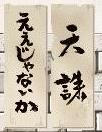 天誅
ええじゃないか